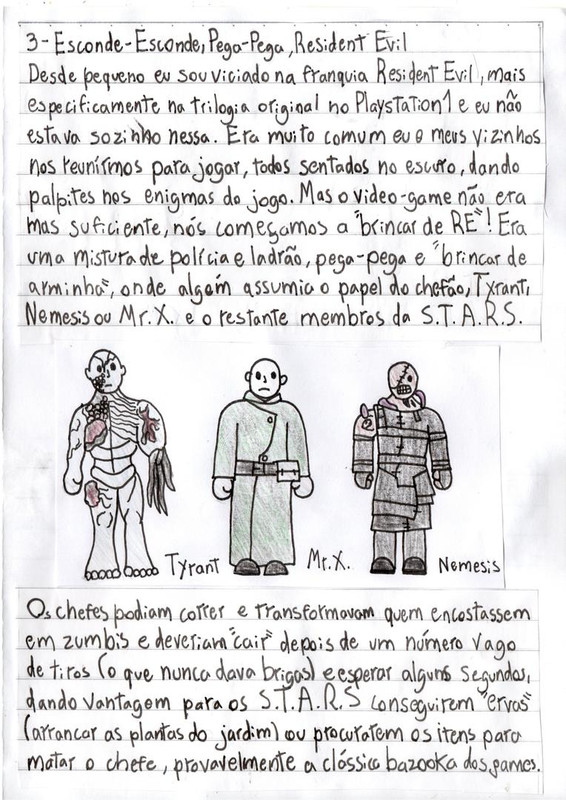 3- Esconde-Esconde, Pega-Pega, Resident Evil
Desde pequeno eu sou viciado na franquia Resident Evil, mais
especificamente na trilogia original no Playstation 1 e eu não
estava sozinho nessa. Era muito comum eu e meus vizinhos
nos reunirmos para jogar, todos sentados no escuro, dando
palpites nos enigmas do jogo. Mas o video-game não era
mas suficiente, nós começamos a "brincar de RE"! Era
uma mistura de polícia e ladrão, pega-pega e "brincar de
arminha", onde algem assumia o papel do chefão, Tyrant,
Nemesis ou Mr.X. e o restante membros da S.T.A.R.S.
Tyrant Mr.X. Nemesis
Os chefes podiam correr e transformavam quem encostassem
em zumbis e deveriam "cair" depois de um número vago
de tiros (o que nunca dava brigas) e esperar alguns segundos,
dando vantagem para os S.T.A.R.S conseguirem "ervas"
(arrancar as plantas do jardim) ou procurarem os itens para
matar o chefe, provavelmente a clássica bazooka dos games.